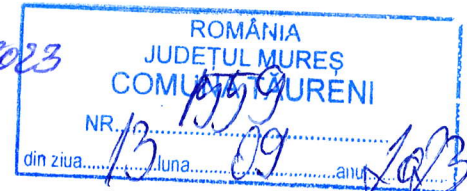 2023
ROMÂNIA
JUDEȚUL MUREȘ
COMUNA TĂURENI
NR. 1559
din ziua 13 luna 09 anu 2023